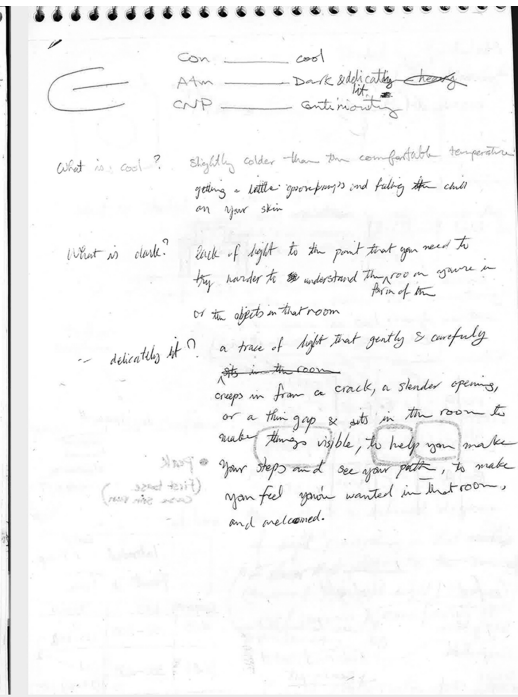 Con ______ cool
Atm ______ Dark & delicately lit. heavy
CNP ______ Continouity
What is cool? slightly colder than the comfortable temperature
getting a little goosebumps and feeling the chill
on your skin
What is dark? Lack of light to the point that you need to
try harder to understand the form of the room you're in
or the objects in that room
-- delicately lit? a trace of light that gently & carefully
sits in the room
creeps in from a crack, a slender opening,
or a thin gap & sits in the room to
make things visible, to help you make
your steps and see your path, to make
you feel you're wanted in that room,
and welcomed.
park
(first base